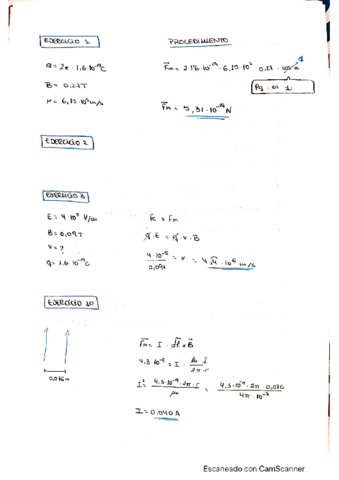 EJERCICIO 1
PROCEDIMIENTO
Q = 2e · 1,6·10⁻¹⁹C
B = 0,27T
v = 6,15·10⁵ m/s
Fm = 2·1'6·10⁻¹⁹ · 6,15·10⁵ · 0,27 ·
Fm = 5,31·10⁻¹⁴ N
EJERCICIO 2
E = 4·10⁵ V/m
B = 0,09T
v = ?
q = 1.6·10⁻¹⁹C
Fe = Fm
q·E = q · v · B
= v =
EJERCICIO 10
0,076m
Fm = I · dl x B
4,3·10⁻⁹ = I · μ₀ I / 2π·r
I² = 4,3·10⁻⁹ · 2π·r / μ₀ = 4,3·10⁻⁹ · 2π · 0,076 / 4π·10⁻⁷
I = 0.040A
Escaneado con CamScanner